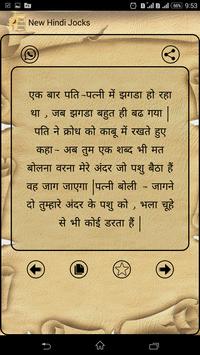 9:53
New Hindi Jocks
एक बार पति-पत्नी में झगडा हो रहा
था , जब झगडा बहुत ही बढ गया |
पति ने क्रोध को काबू में रखते हुए
कहा- अब तुम एक शब्द भी मत
बोलना वरना मेरे अंदर जो पशु बैठा हैं
वह जाग जाएगा |पत्नी बोली - जागने
दो तुम्हारे अंदर के पशु को , भला चूहे
से भी कोई डरता हैं |